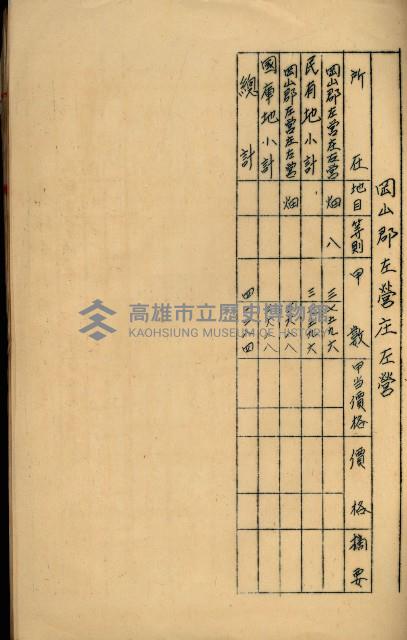 岡山郡左營庄左營
所在 地目 等則 甲數 甲当價格 價格 摘要
岡山郡左營庄左營 畑 八
民有地小計
岡山郡左營庄左營 畑
國庫地小計
總計
高雄市立歷史博物館
KAOHSIUNG MUSEUM OF HISTORY